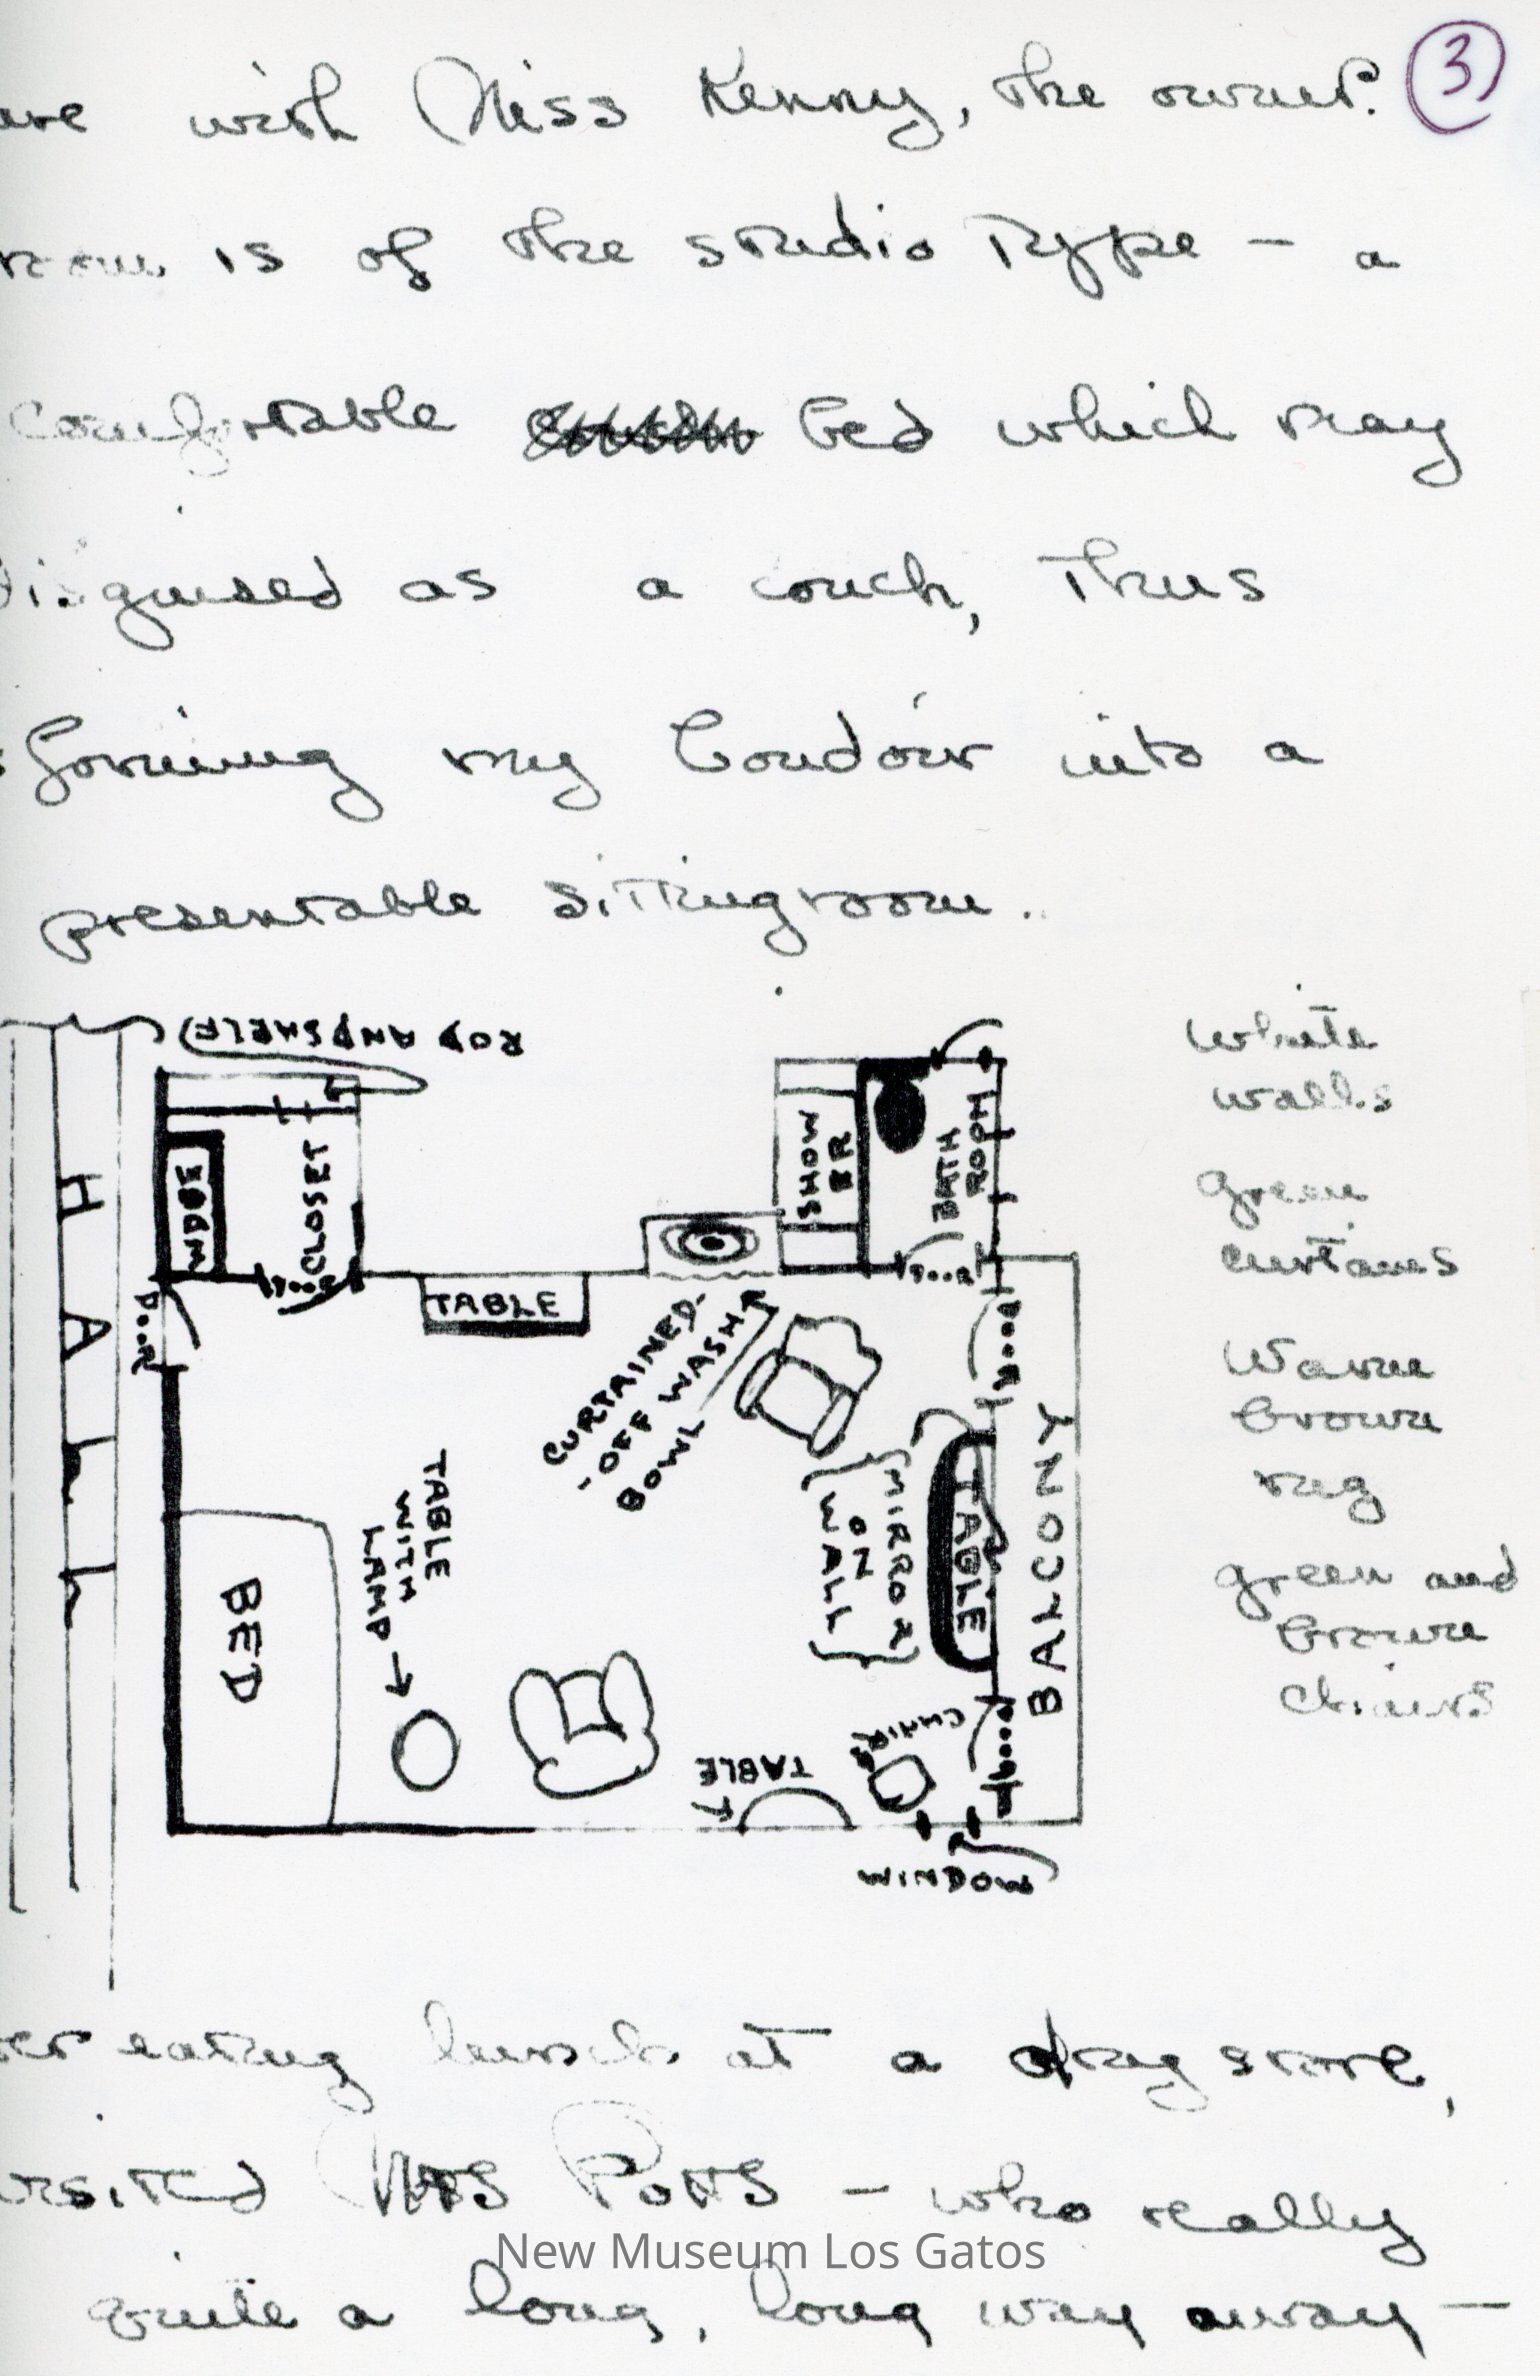 with Miss Kenny, the owner. 3
is of the studio Type — a
comfortable bed which may
disguised as a couch, Thus
forming my boudoir into a
presentable sittingroom.
ROD AND SHELF
White
walls
green
curtains
Warm
brown
rug
green and
brown
chairs
HALL
CLOSET
SHOW
ER
BATH
ROOM
Door
Door
Door
Door
Door
TABLE
CURTAINED-
-OFF WASH
BOWL
TABLE
WITH
LAMP
BED
MIRROR
ON
WALL
TABLE
BALCONY
CHAIR
TABLE
WINDOW
eating lunch at a drug store,
Mrs Potts — who really
quite a long, long way away —
New Museum Los Gatos